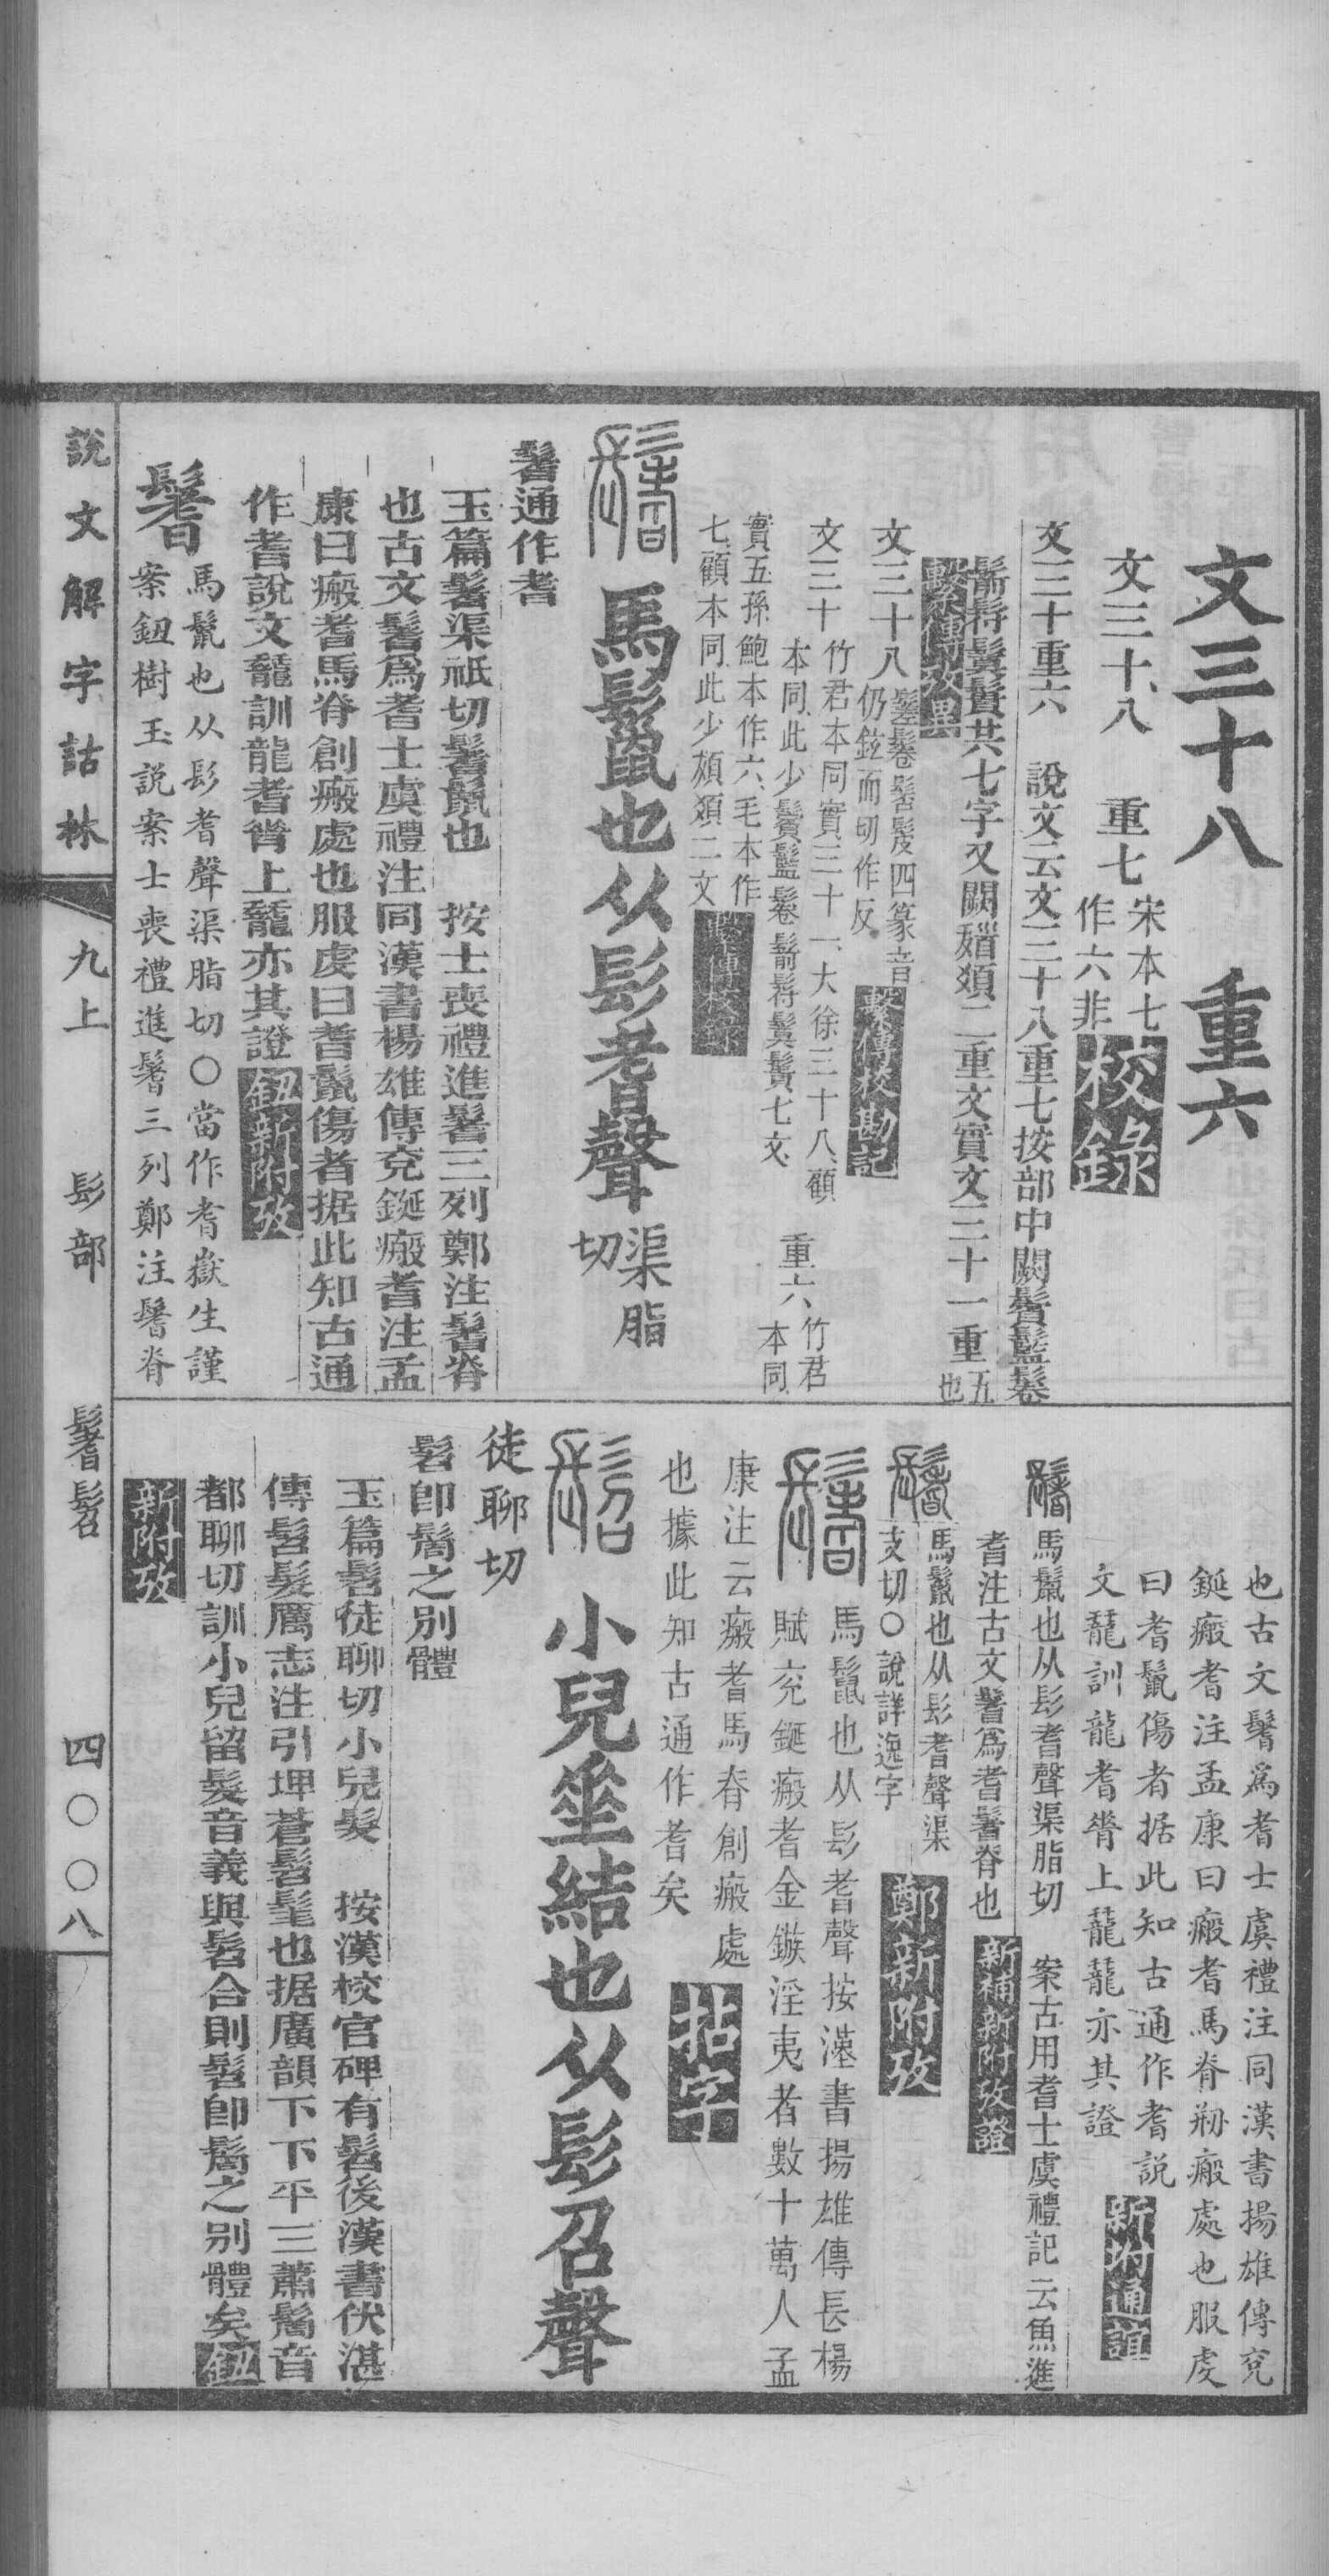 文三十八　重六
文三十八　重七宋本七作六非校錄
文三十重六　說文云文三十八重七按部中闕鬢鬛鬈
鬋髵䰅鬒共七字又闕䫇須二重文實文三十一重五也
繫傳攷異
文三十八髽鬈髺髲四篆音仍鉉而切作反繫傳校勘記
文三十竹君本同實三十一大徐三十八顧本同此少鬢鬛鬈鬋髵䰅鬒七文　重六竹君本同
實五孫鮑本作六毛本作七顧本同此少䫇須二文繫傳校錄
鬐 馬鬣也从髟耆聲渠脂切
鬐通作耆
玉篇鬐渠祇切鬐鬣也　按士喪禮進鬐三列鄭注鬐脊
也古文鬐爲耆士虞禮注同漢書楊雄傳兖鋋瘢耆注孟
康曰瘢耆馬脊創瘢處也服虔曰耆鬣傷者据此知古通
作耆說文龖訓龍耆脊上龖亦其證鈕新附攷
鬐 馬鬣也从髟耆聲渠脂切○當作耆嶽生謹
案鈕樹玉說案士喪禮進鬐三列鄭注鬐脊
也古文鬐爲耆士虞禮注同漢書揚雄傳兖
鋋瘢耆注孟康曰瘢耆馬脊刱瘢處也服虔
曰耆鬣傷者据此知古通作耆説
文龖訓龍耆脊上龖龖亦其證新附通誼
鬐 馬鬣也从髟耆聲渠脂切　案古用耆士虞禮記云魚進
耆注古文鬐爲耆鬐脊也新補新附攷證
鬐 馬鬣也从髟耆聲渠
支切○說詳逸字鄭新附攷
鬐 馬鬣也从髟耆聲按漢書揚雄傳長楊
賦兖鋋瘢耆金鏃淫夷者數十萬人孟
康注云瘢耆馬脊創瘢處
也據此知古通作耆矣拈字
髫 小兒垂結也从髟召聲
徒聊切
髫卽髾之別體
玉篇髫徒聊切小兒髮　按漢校官碑有髫後漢書伏湛
傳髫髮厲志注引埤蒼髫髦也据廣韻下下平三蕭髾音
都聊切訓小兒留髮音義與髫合則髫卽髾之別體矣鈕
新附攷
說文解字詁林　九上　髟部　鬐髫　四〇〇八